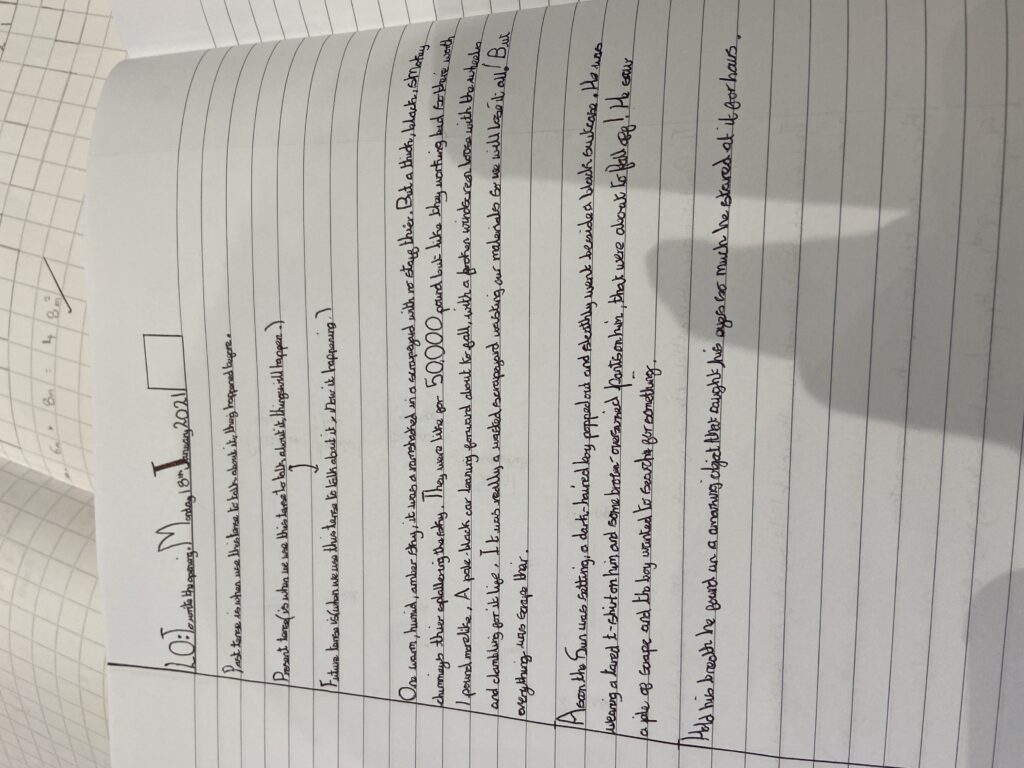 LO: To write the opening. Monday 18th January 2021
Past tense is when use this tense to talk about it, they happened before.
Present tense (is when we use this tense to talk about it, things will happen.)
Future tense is (when we use this tense to talk about it, Now it happening.)
One warm, humid, amber sky, it was a in a scrapeyard with no stay thier. But a thick, black, smokey
chimneys thier the sky. They were like for 50,000 pound but like they worthing but for their worth
1 pound more like. A pale black car leaning forward about to fall, with a windscreen loose with the wheels
and for it life. It was really a wasted scrapeyard wasting our materials so we will lose it all! But
everything was scrape thier.
A soon the Sun was setting, a dark-haired boy popped out and stealthly went beside a black suitcase. He was
wearing a t-shirt on him and some broken on him, that were about to fall off! He saw
a pile of scrape and the boy wanted to search for something.
Hold his breath he found un a amazing object that caught his eyes so much he stared at it for hours.
6m × 8m = 48m²